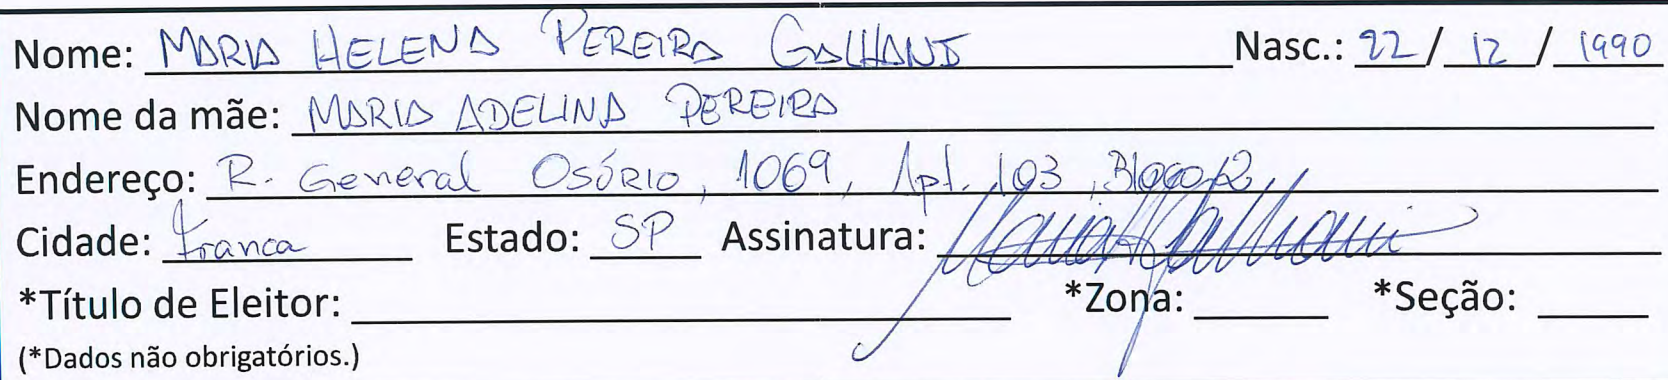 Nome: MARIA HELENA PEREIRA GALHANI Nasc.: 22/ 12 / 1990
Nome da mãe: MARIA ADELINA PEREIRA
Endereço: R. General OSÓRIO, 1069, Apt. 103, Bloco 2
Cidade: Franca Estado: SP Assinatura: Maria H Galhani
*Título de Eleitor: *Zona: *Seção:
(*Dados não obrigatórios.)